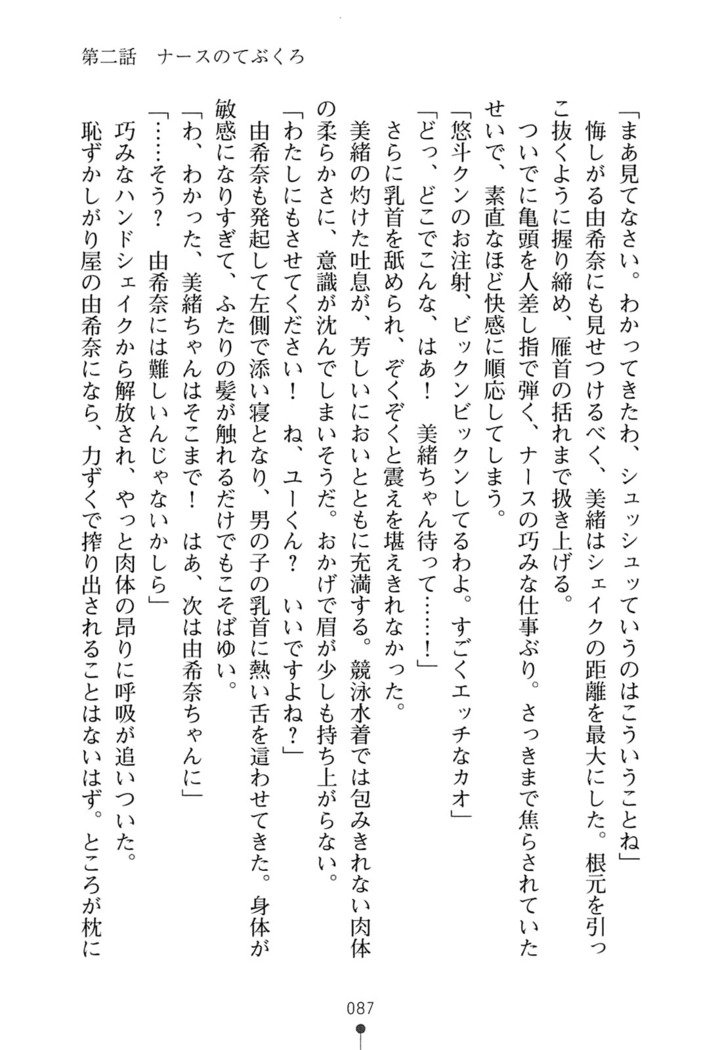 第二話　ナースのてぶくろ
「まあ見てなさい。わかってきたわ、シュッシュッていうのはこういうことね」
悔しがる由希奈にも見せつけるべく、美緒はシェイクの距離を最大にした。根元を引っ
こ抜くように握り締め、雁首の括れまで扱き上げる。
ついでに亀頭を人差し指で弾く、ナースの巧みな仕事ぶり。さっきまで焦らされていた
せいで、素直なほど快感に順応してしまう。
「悠斗クンのお注射、ビックンビックンしてるわよ。すごくエッチなカオ」
「どっ、どこでこんな、はぁ！　美緒ちゃん待って……！」
さらに乳首を舐められ、ぞくぞくと震えを堪えきれなかった。
美緒の灼けた吐息が、芳しいにおいとともに充満する。競泳水着では包みきれない肉体
の柔らかさに、意識が沈んでしまいそうだ。おかげで眉が少しも持ち上がらない。
「わたしにもさせてください！　ね、ユーくん？　いいですよね？」
由希奈も発起して左側で添い寝となり、男の子の乳首に熱い舌を這わせてきた。身体が
敏感になりすぎて、ふたりの髪が触れるだけでもこそばゆい。
「わ、わかった、美緒ちゃんはそこまで！　はあ、次は由希奈ちゃんに」
「……そう？　由希奈には難しいんじゃないかしら」
巧みなハンドシェイクから解放され、やっと肉体の昂りに呼吸が追いついた。
恥ずかしがり屋の由希奈になら、力ずくで搾り出されることはないはず。ところが枕に
087